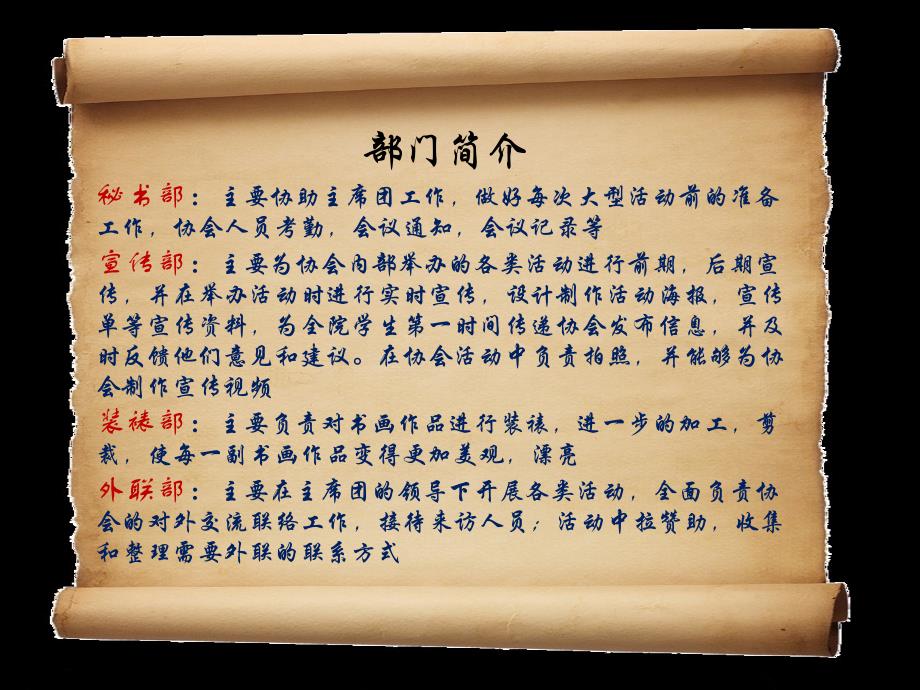 部门简介
秘书部：主要协助主席团工作，做好每次大型活动前的准备
工作，协会人员考勤，会议通知，会议记录等
宣传部：主要为协会内部举办的各类活动进行前期，后期宣
传，并在举办活动时进行实时宣传，设计制作活动海报，宣传
单等宣传资料，为全院学生第一时间传递协会发布信息，并及
时反馈他们意见和建议。在协会活动中负责拍照，并能够为协
会制作宣传视频
装裱部：主要负责对书画作品进行装裱，进一步的加工，剪
裁，使每一副书画作品变得更加美观，漂亮
外联部：主要在主席团的领导下开展各类活动，全面负责协
会的对外交流联络工作，接待来访人员；活动中拉赞助，收集
和整理需要外联的联系方式